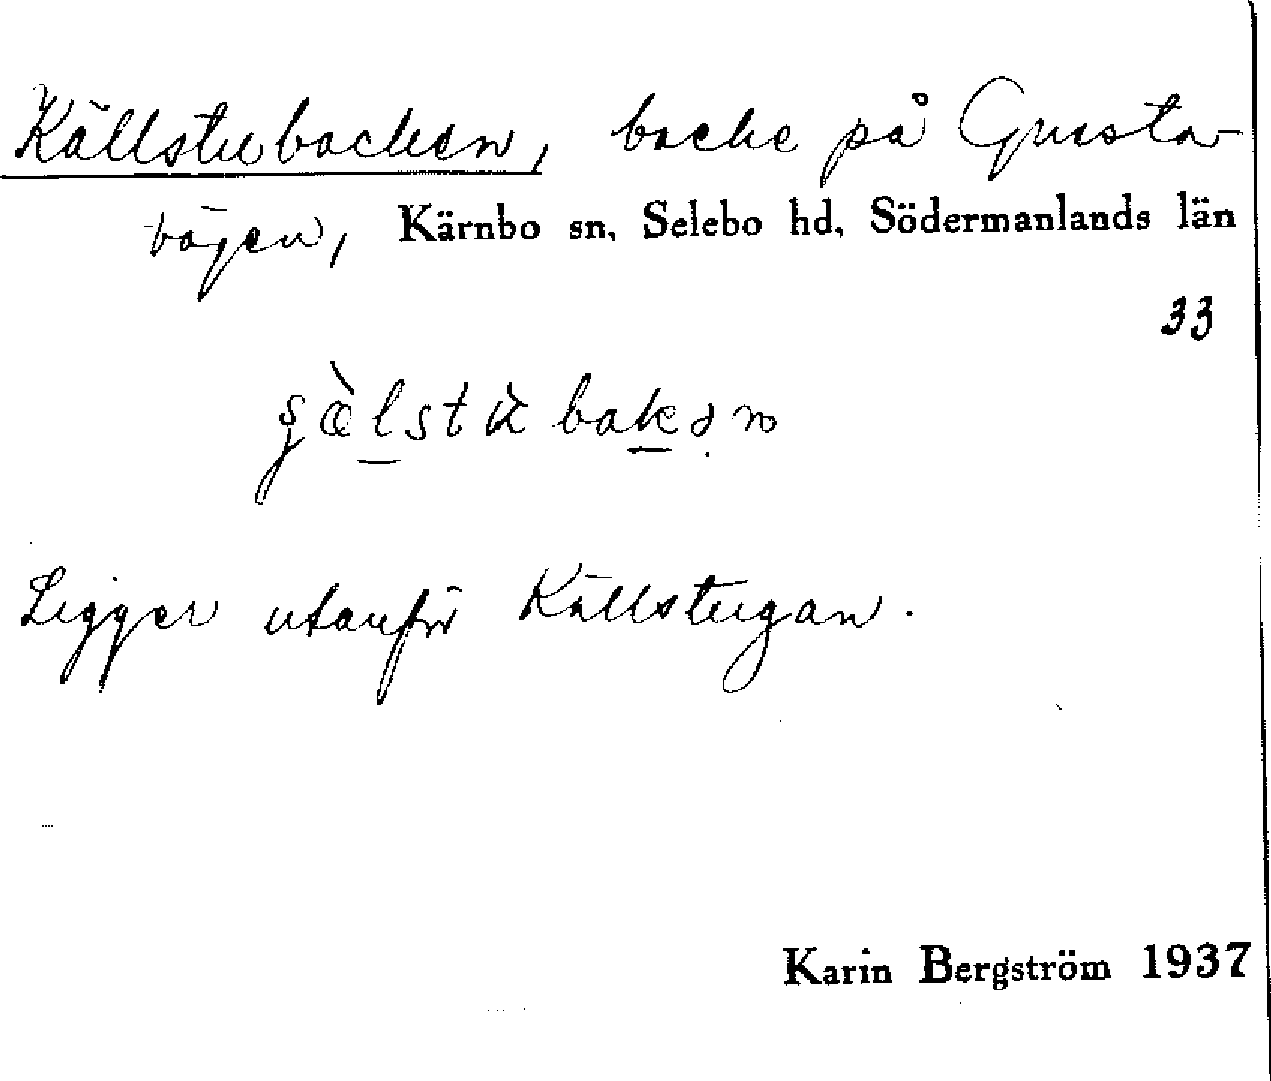 Källstubacken, backe på Gusta-
vägen, Kärnbo sn, Selebo hd, Södermanlands län
33
Ligger utanför Källstugan.
Karin Bergström 1937